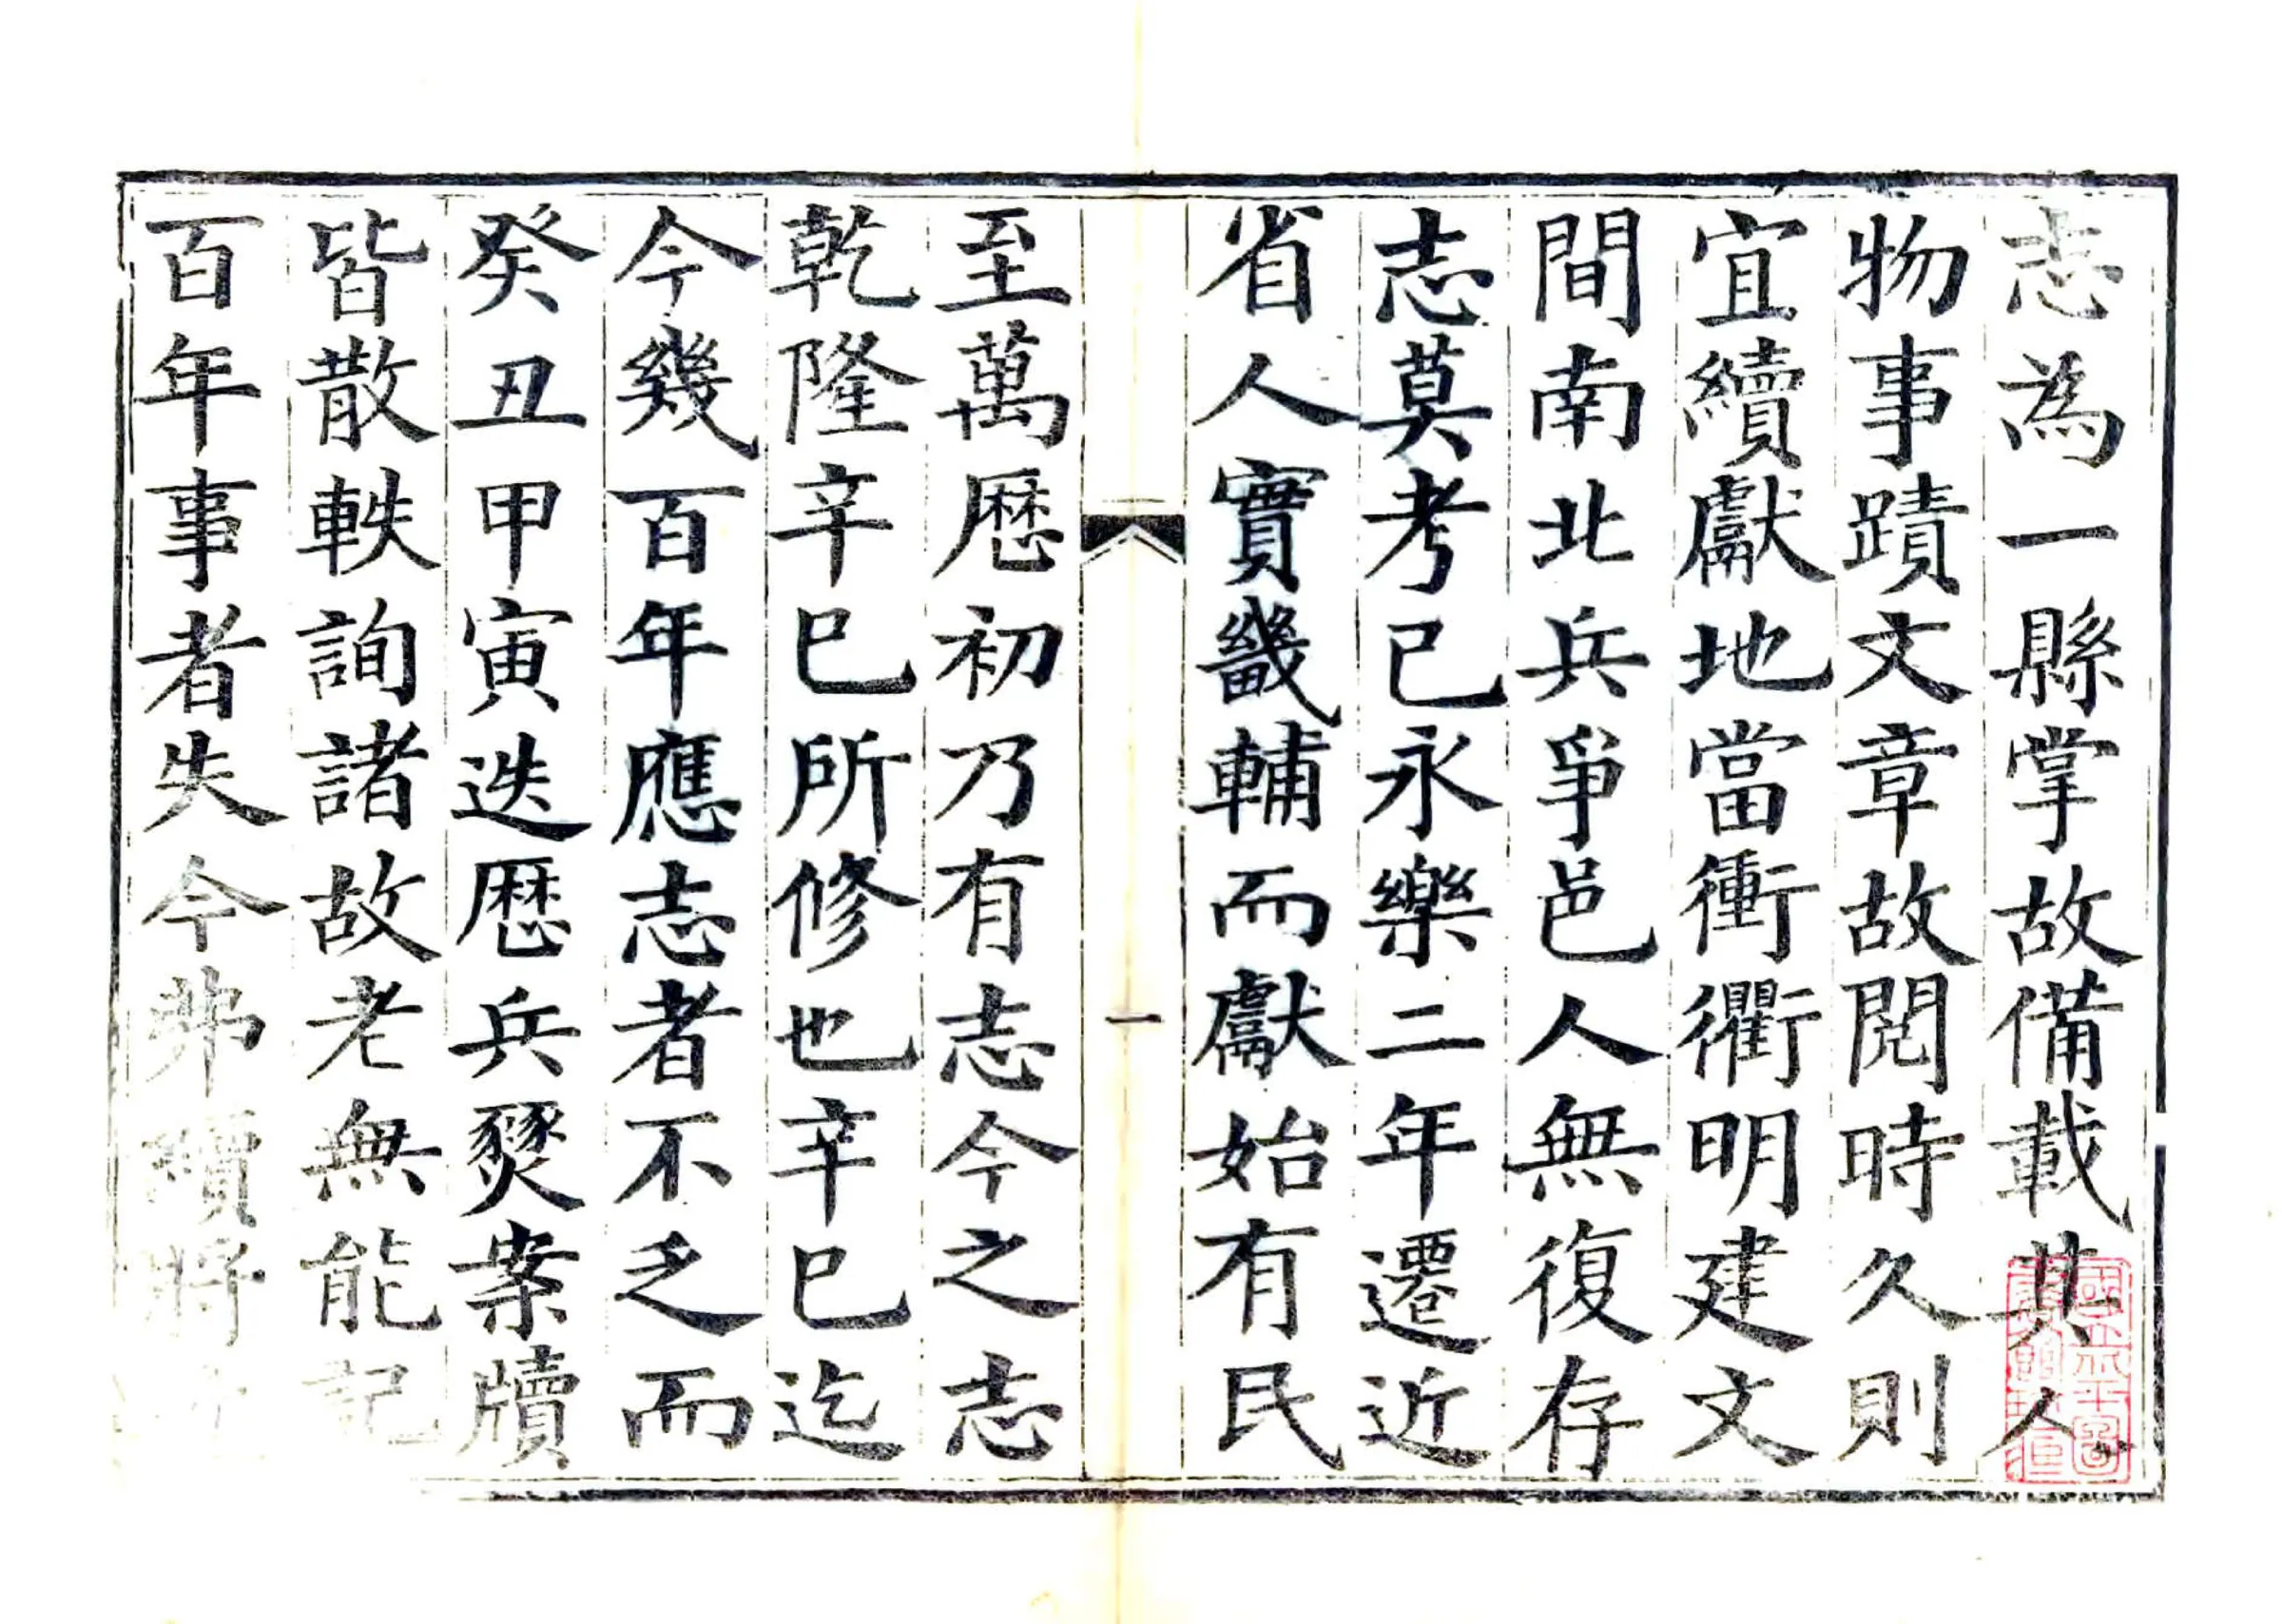 志為一縣掌故備載其人
物事蹟文章故閱時久則
宜續獻地當衝衢明建文
間南北兵爭邑人無復存
志莫考已永樂二年遷近
省人實畿輔而獻始有民
一
至萬厯初乃有志今之志
乾隆辛巳所修也辛巳迄
今幾百年應志者不乏而
癸丑甲寅迭厯兵燹案牘
皆散軼詢諸故老無能記
百年事者失今弗續將